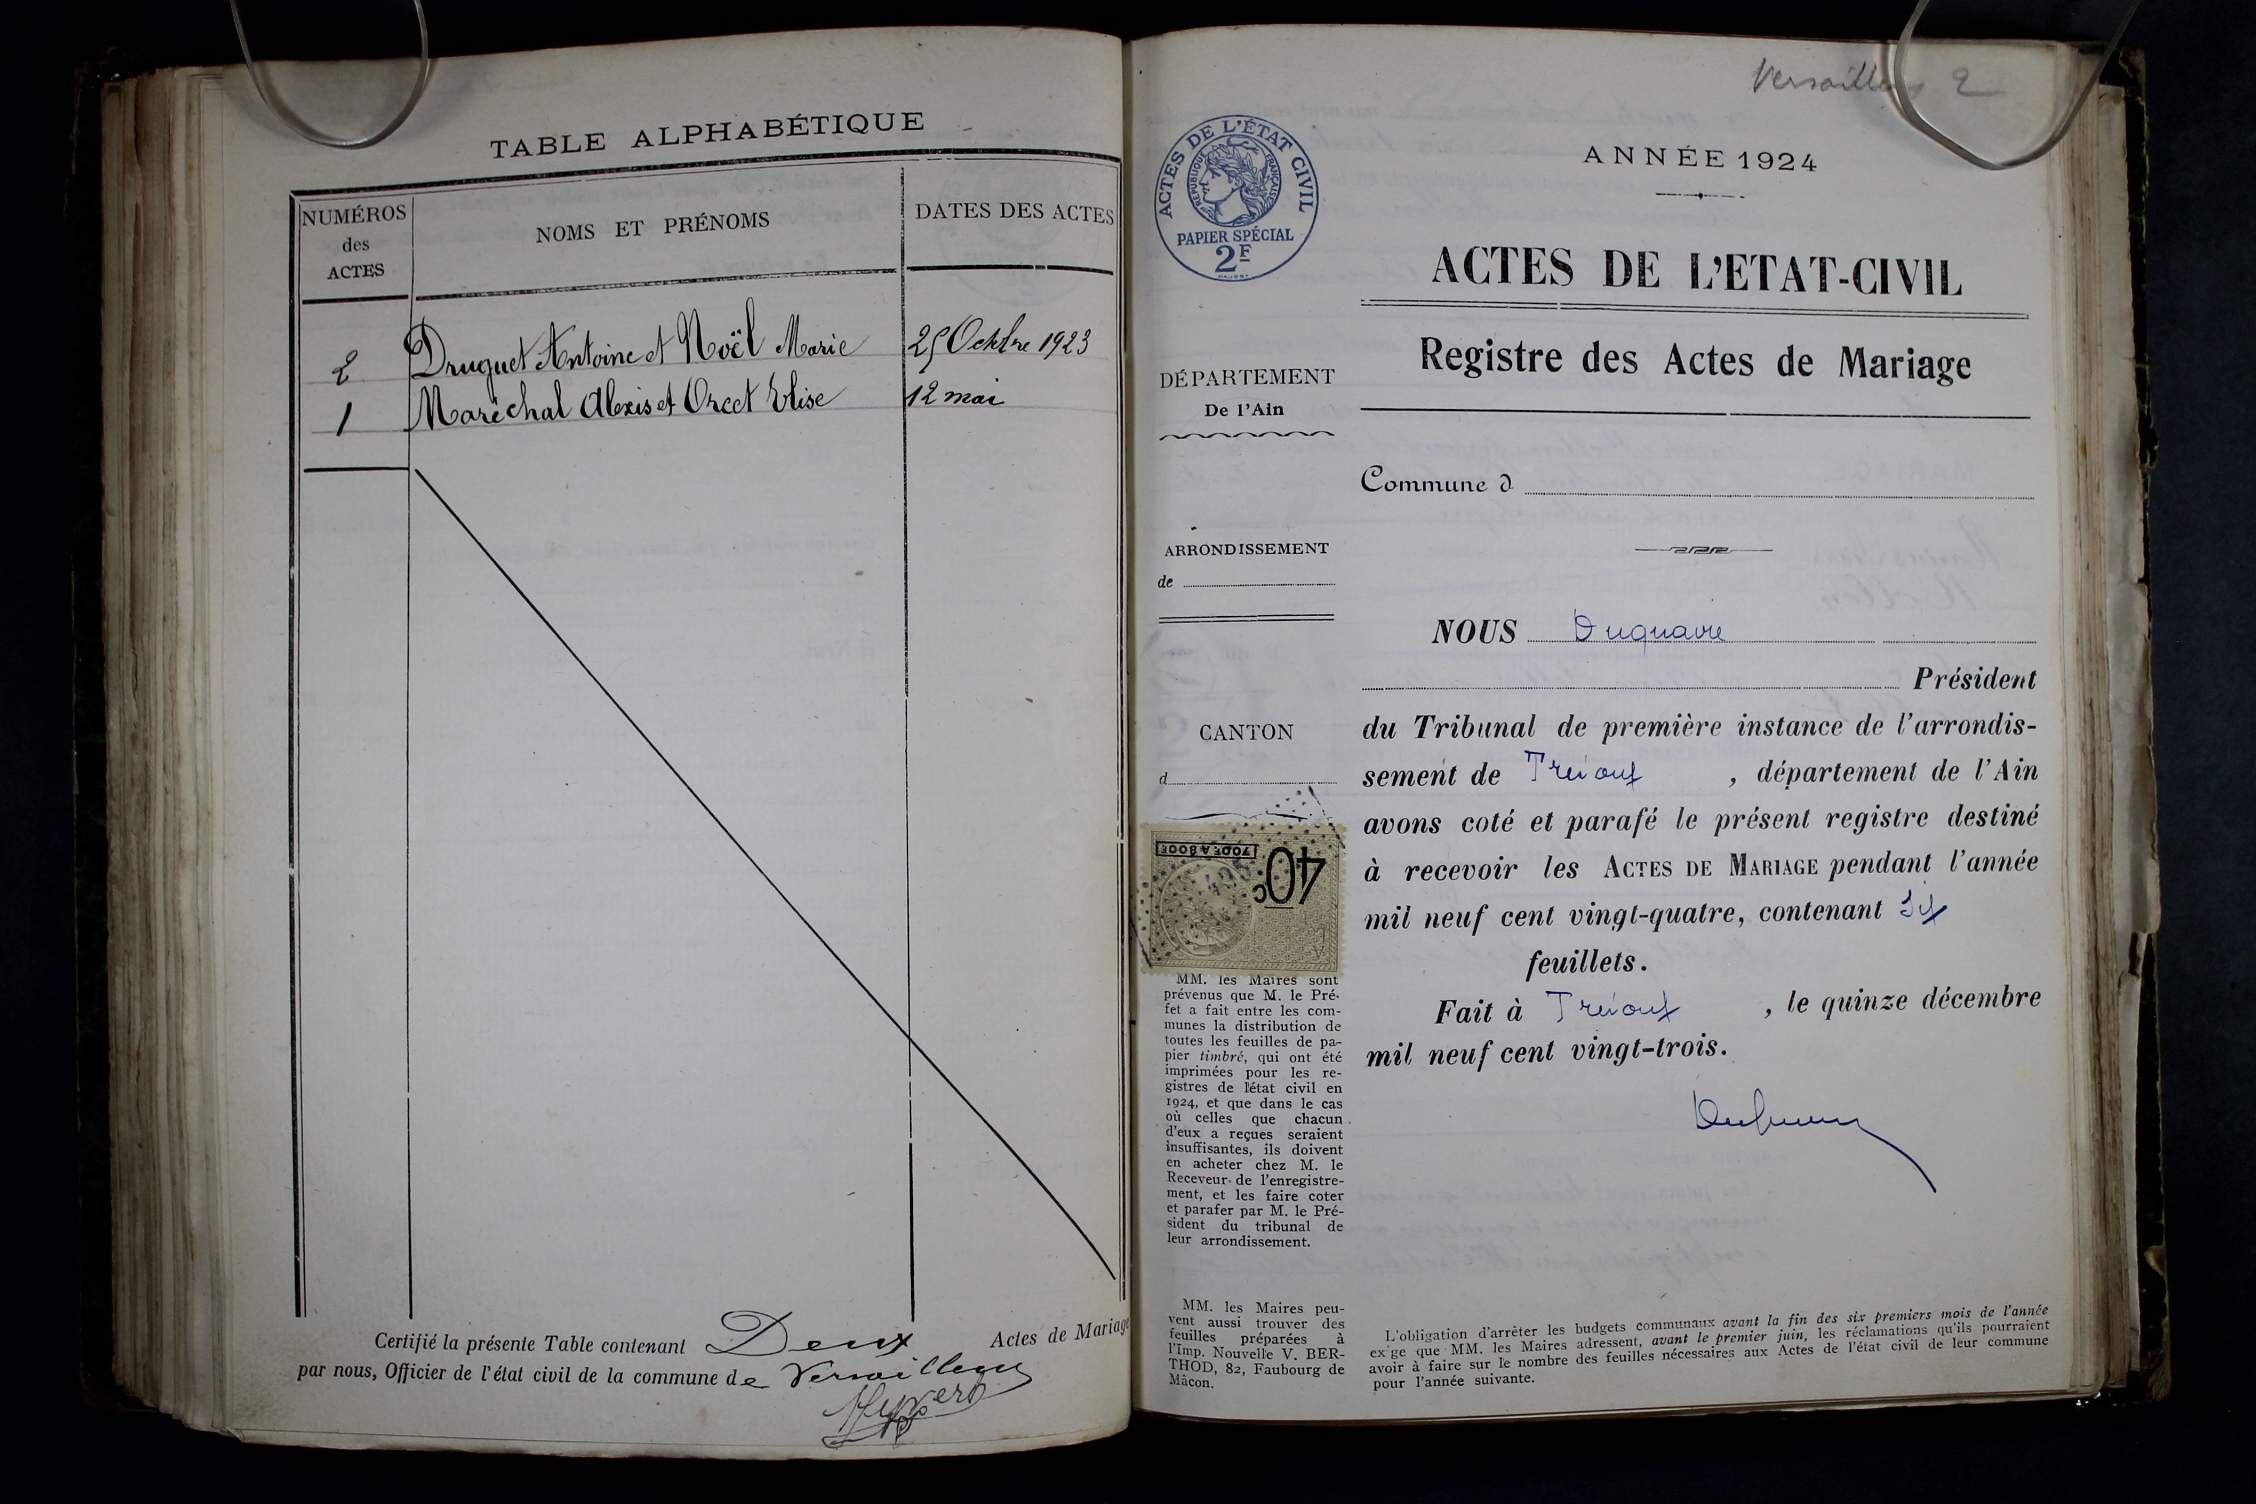 TABLE ALPHABÉTIQUE
NUMÉROS
des
ACTES
NOMS ET PRÉNOMS
DATES DES ACTES
2 Druguet Antoine et Noël Marie 25 Octbre 1923
1 Maréchal Alexis et Orcet Elise 12 mai
Certifié la présente Table contenant Deux Actes de Mariage
par nous, Officier de l'état civil de la commune de Versailleux
Versailleux 2
ACTES DE L'ÉTAT CIVIL
RÉPUBLIQUE FRANÇAISE
PAPIER SPÉCIAL
2F
ANNÉE 1924
ACTES DE L'ETAT-CIVIL
Registre des Actes de Mariage
DÉPARTEMENT
De l'Ain
Commune d
ARRONDISSEMENT
de
CANTON
d
NOUS Duquaire
Président
du Tribunal de première instance de l'arrondis-
sement de Trévoux, département de l'Ain
avons coté et parafé le présent registre destiné
à recevoir les ACTES DE MARIAGE pendant l'année
mil neuf cent vingt-quatre, contenant Six
feuillets.
Fait à Trévoux, le quinze décembre
mil neuf cent vingt-trois.
40c
700F A 800F
MM. les Maires sont
prévenus que M. le Pré-
fet a fait entre les com-
munes la distribution de
toutes les feuilles de pa-
pier timbré, qui ont été
imprimées pour les re-
gistres de l'état civil en
1924, et que dans le cas
où celles que chacun
d'eux a reçues seraient
insuffisantes, ils doivent
en acheter chez M. le
Receveur de l'enregistre-
ment, et les faire coter
et parafer par M. le Pré-
sident du tribunal de
leur arrondissement.
MM. les Maires peu-
vent aussi trouver des
feuilles préparées à
l'Imp. Nouvelle V. BER-
THOD, 82, Faubourg de
Mâcon.
L'obligation d'arrêter les budgets communaux avant la fin des six premiers mois de l'année
exige que MM. les Maires adressent, avant le premier juin, les réclamations qu'ils pourraient
avoir à faire sur le nombre des feuilles nécessaires aux Actes de l'état civil de leur commune
pour l'année suivante.